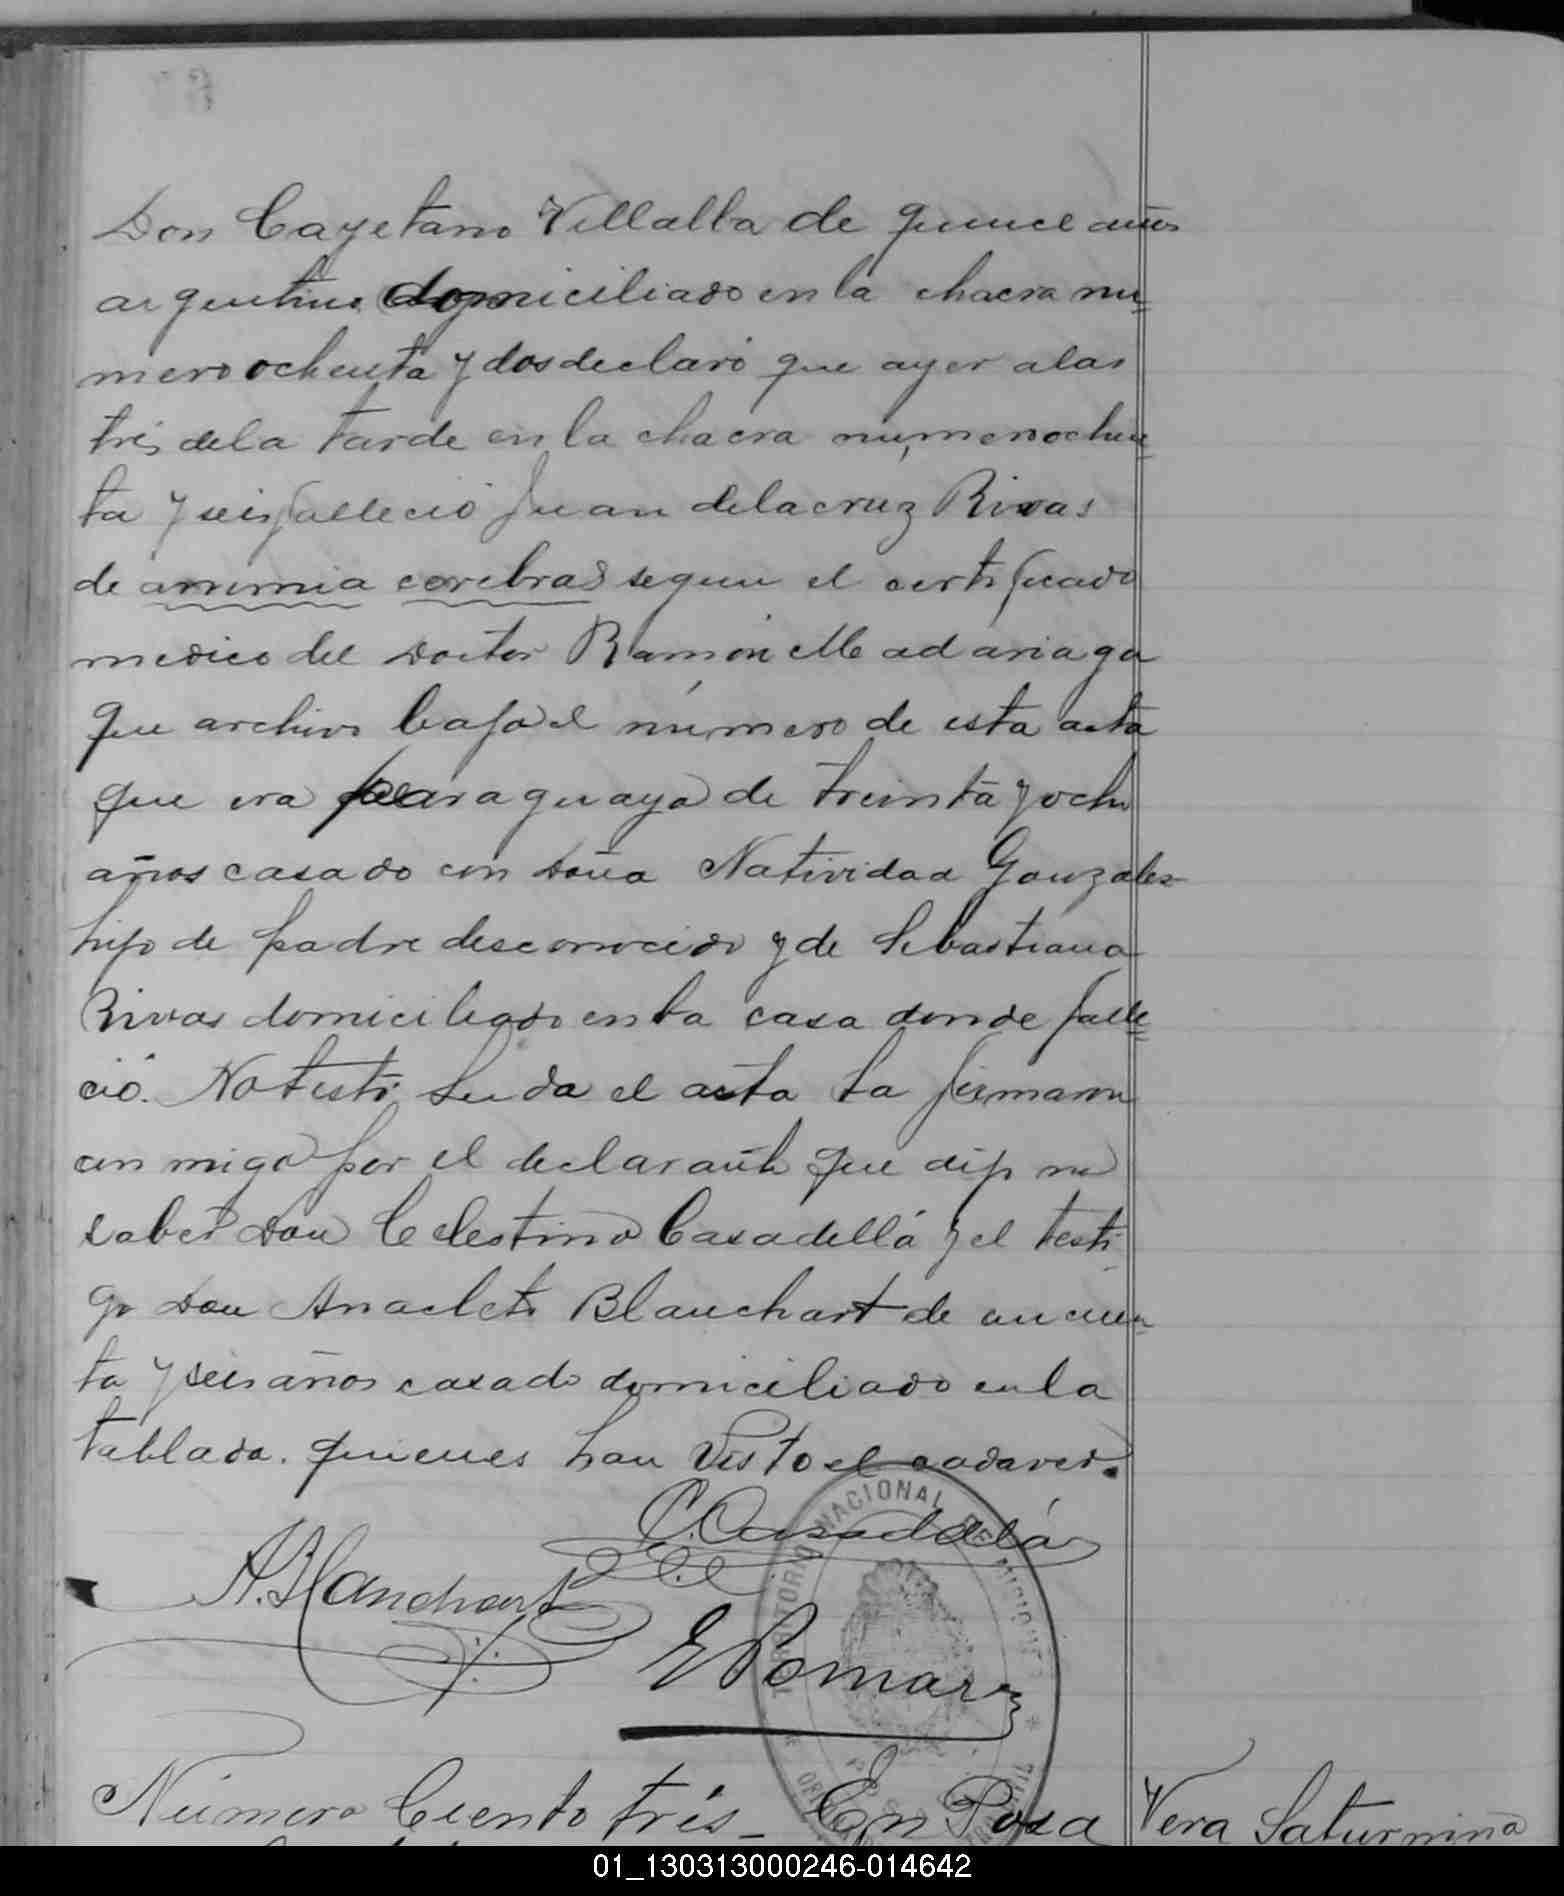 Don Cayetano Villalba de quince años
argentino domiciliado en la chacra nu=
mero ochenta y dos declaró que ayer a las
trés de la tarde en la chacra número ochen=
ta y seis falleció Juan de la cruz Rivas
de anemia cerebral segun el certificado
medico del Doctor Ramón Madariaga
que archivo bajo el número de esta acta
que era paraguayo de treinta y ocho
años casado con doña Natividad Gonzalez
hijo de padre desconocido y de Sebastiana
Rivas domiciliado en la casa donde falle=
ció. No testó. Leida el acta la firmaron
con migo por el declarante que dijo no
saber Don Celestino Casadellá y el testi
go Don Anacleto Blanchart de cincuen=
ta y seis años casado domiciliado en la
tablada. quienes han visto el cadaver.
C. Casadellá
A. Blanchart
E Pomar
TERRITORIO NACIONAL DE MISIONES
Número Ciento trés_ En Posa
Vera Saturnina
01_130313000246-014642